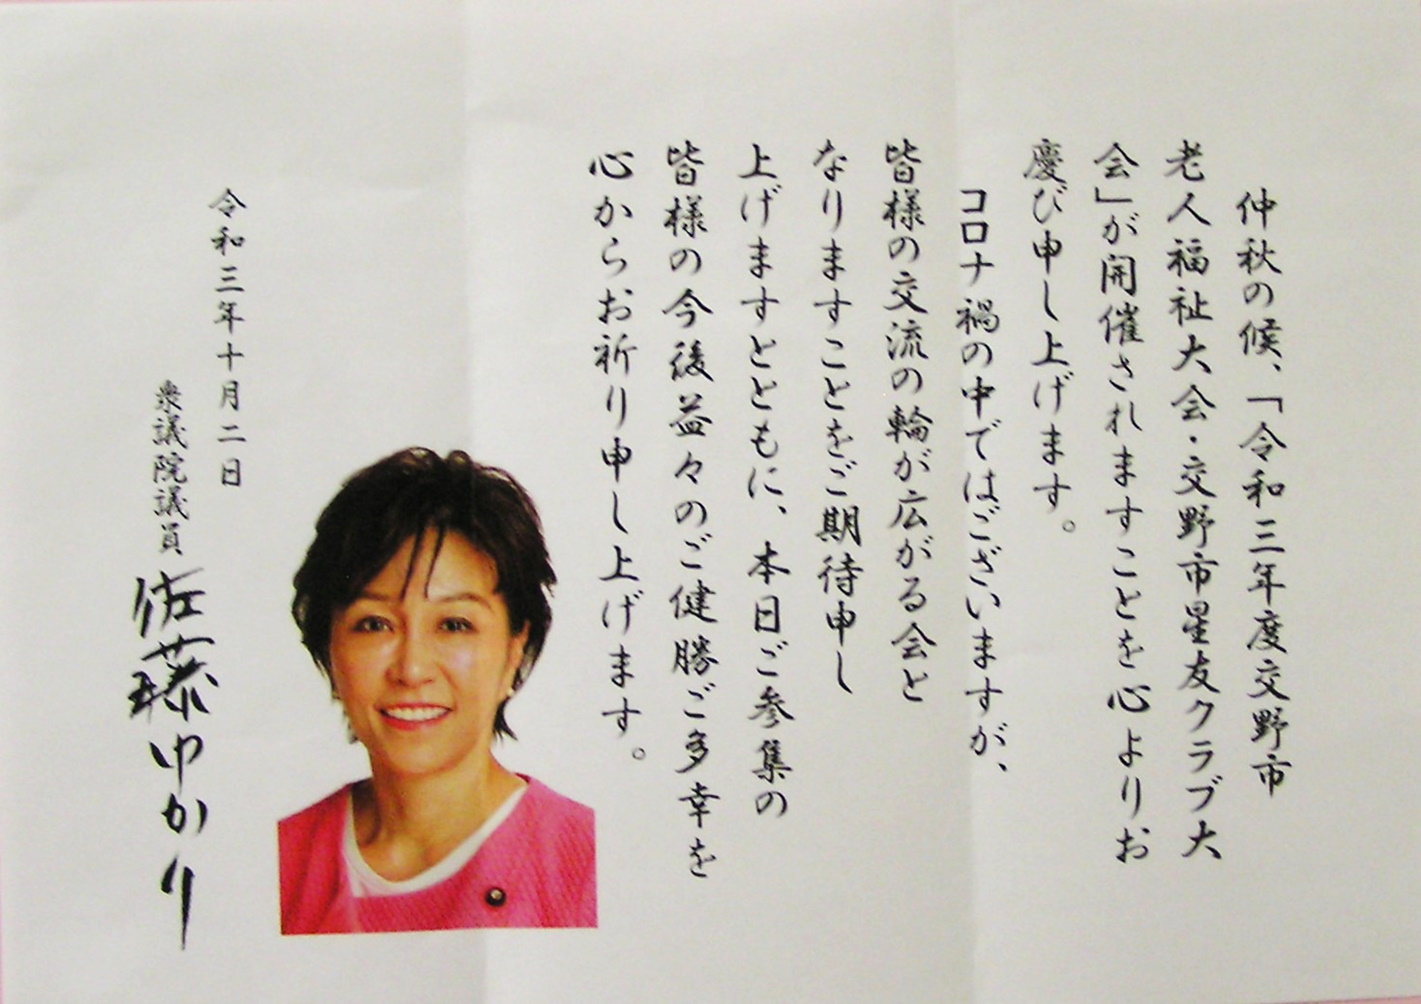 仲秋の候、「令和三年度交野市
老人福祉大会・交野市星友クラブ大
会」が開催されますことを心よりお
慶び申し上げます。
コロナ禍の中ではございますが、
皆様の交流の輪が広がる会と
なりますことをご期待申し
上げますとともに、本日ご参集の
皆様の今後益々のご健勝ご多幸を
心からお祈り申し上げます。
令和三年十月二日
衆議院議員 佐藤ゆかり